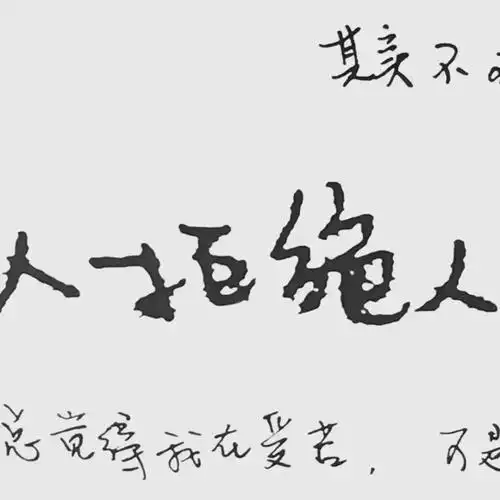 其实不
人拒绝人
总觉得我在受苦，可是